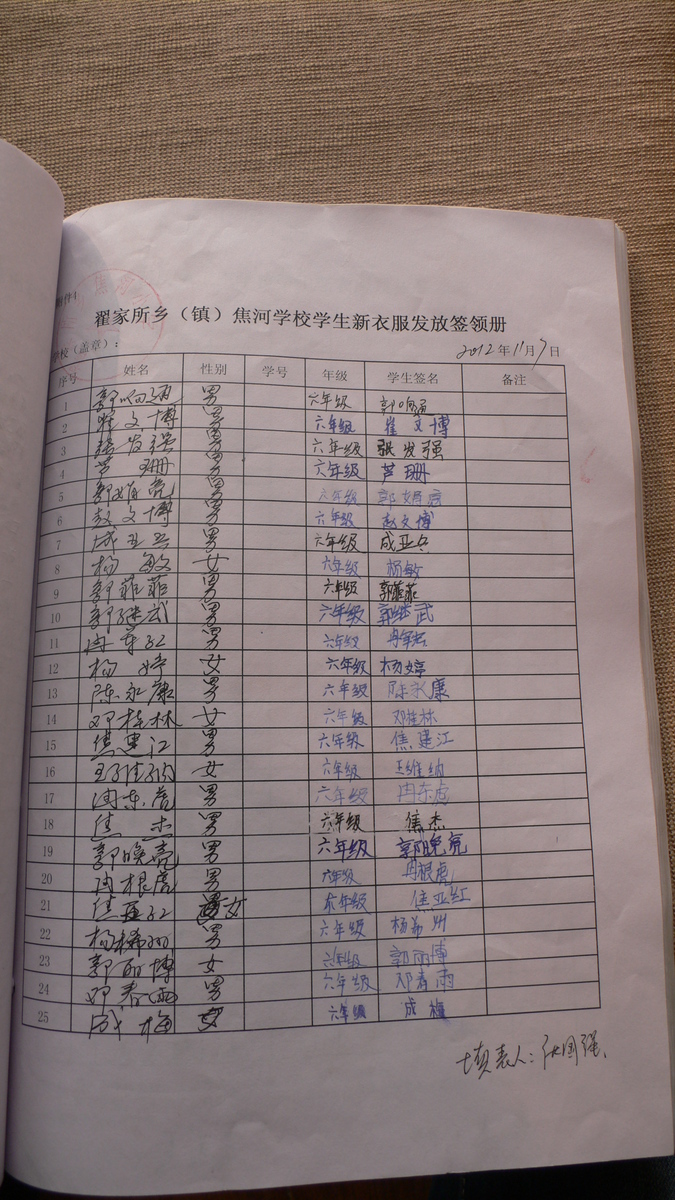 附件
翟家所乡（镇）焦河学校学生新衣服发放签领册
学校（盖章）： 2012年11月7日
序号 姓名 性别 学号 年级 学生签名 备注
1 郭响 男 六年级 郭响
2 崔文博 男 六年级 崔文博
3 张发强 男 六年级 张发强
4 芦珊 男 六年级 芦珊
5 郭娟亮 男 六年级 郭娟亮
6 赵文博 男 六年级 赵文博
7 成亚兵 男 六年级 成亚兵
8 杨敏 女 六年级 杨敏
9 郭菲菲 男 六年级 郭菲菲
10 郭继武 男 六年级 郭继武
11 冉军红 男 六年级 冉军红
12 杨婷 女 六年级 杨婷
13 陈永康 男 六年级 陈永康
14 邓桂林 女 六年级 邓桂林
15 焦建江 男 六年级 焦建江
16 王维纳 女 六年级 王维纳
17 冉东虎 男 六年级 冉东虎
18 焦杰 男 六年级 焦杰
19 郭晓亮 男 六年级 郭晓亮
20 冉根虎 男 六年级 冉根虎
21 焦亚红 女 六年级 焦亚红
22 杨 男 六年级 杨
23 郭丽博 女 六年级 郭丽博
24 邓春雨 男 六年级 邓春雨
25 成梅 女 六年级 成梅
填表人：张国强